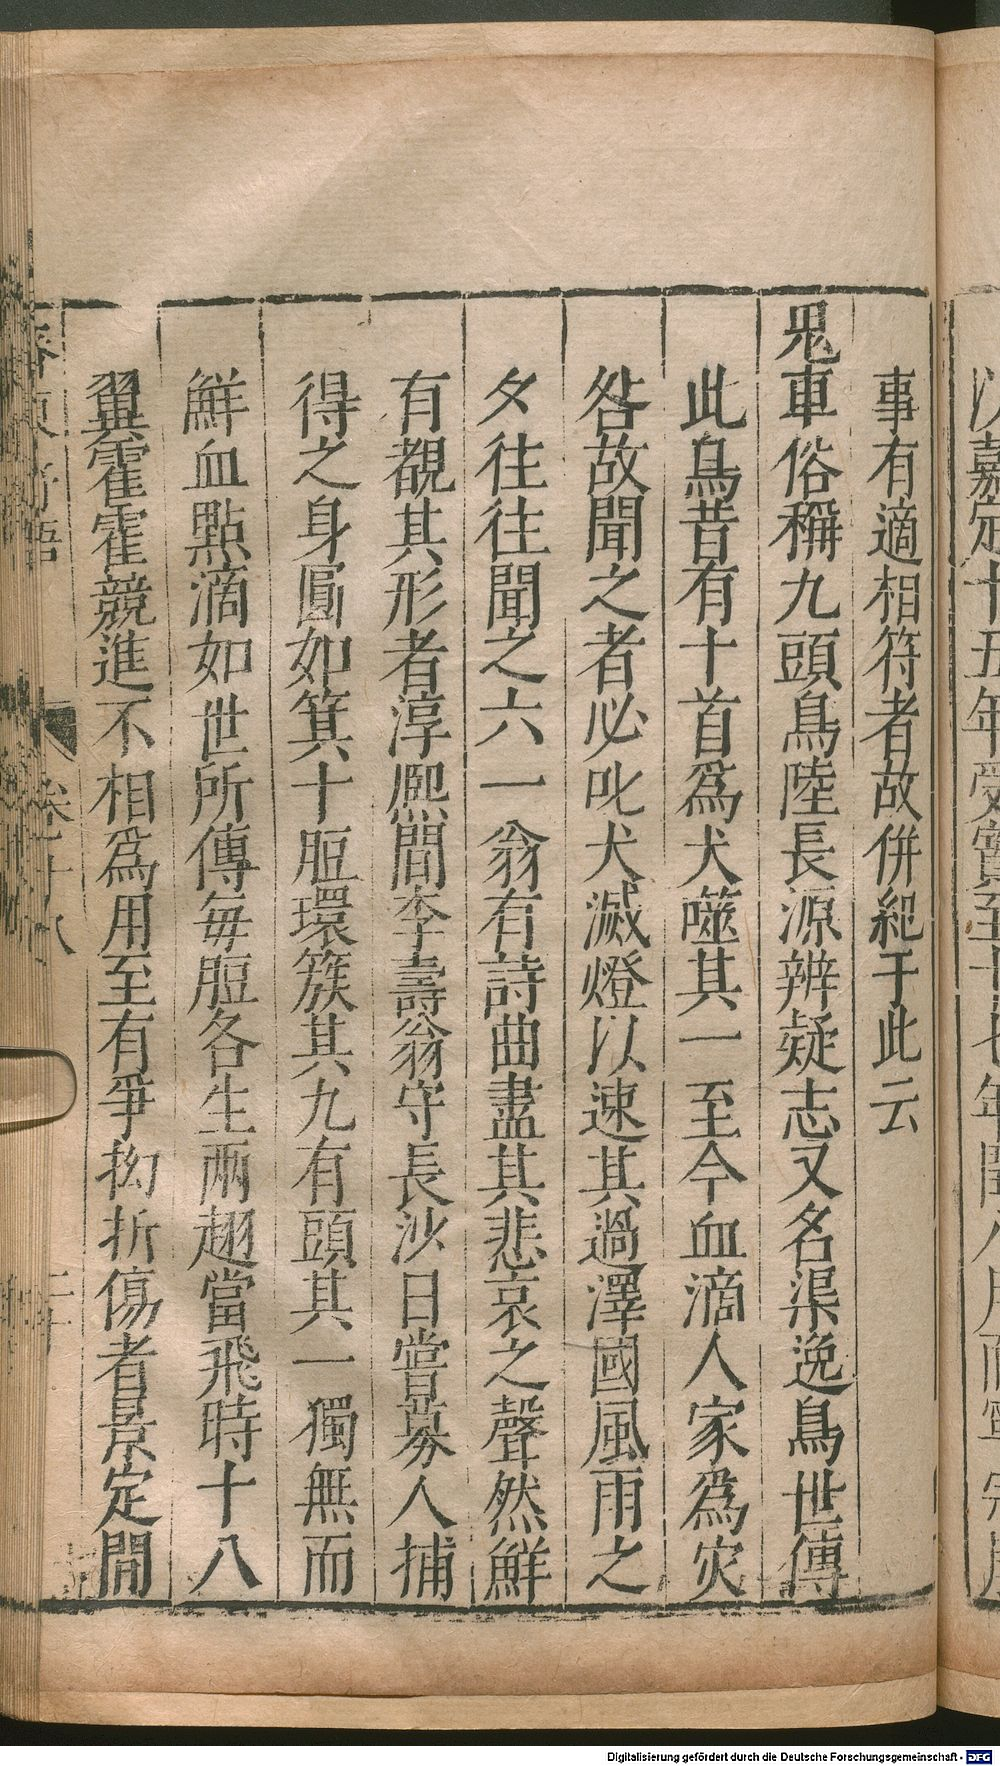 嘉定十五年受寳至十七年閏八月而寧宗
事有適相符者故併紀于此云
鬼車俗稱九頭鳥陸長源辨疑志又名渠逸鳥世傳
此鳥昔有十首爲犬噬其一至今血滴人家爲灾
咎故聞之者必叱犬滅燈以速其過澤國風雨之
夕往往聞之六一翁有詩曲盡其悲哀之聲然鮮
有覩其形者淳熈間李壽翁守長沙日嘗募人捕
得之身圓如箕十脰環簇其九有頭其一獨無而
鮮血點滴如世所傳每脰各生兩翅當飛時十八
翼霍霍競進不相爲用至有爭拗折傷者景定間
齊東野語 卷十八
Digitalisierung gefördert durch die Deutsche Forschungsgemeinschaft - DFG